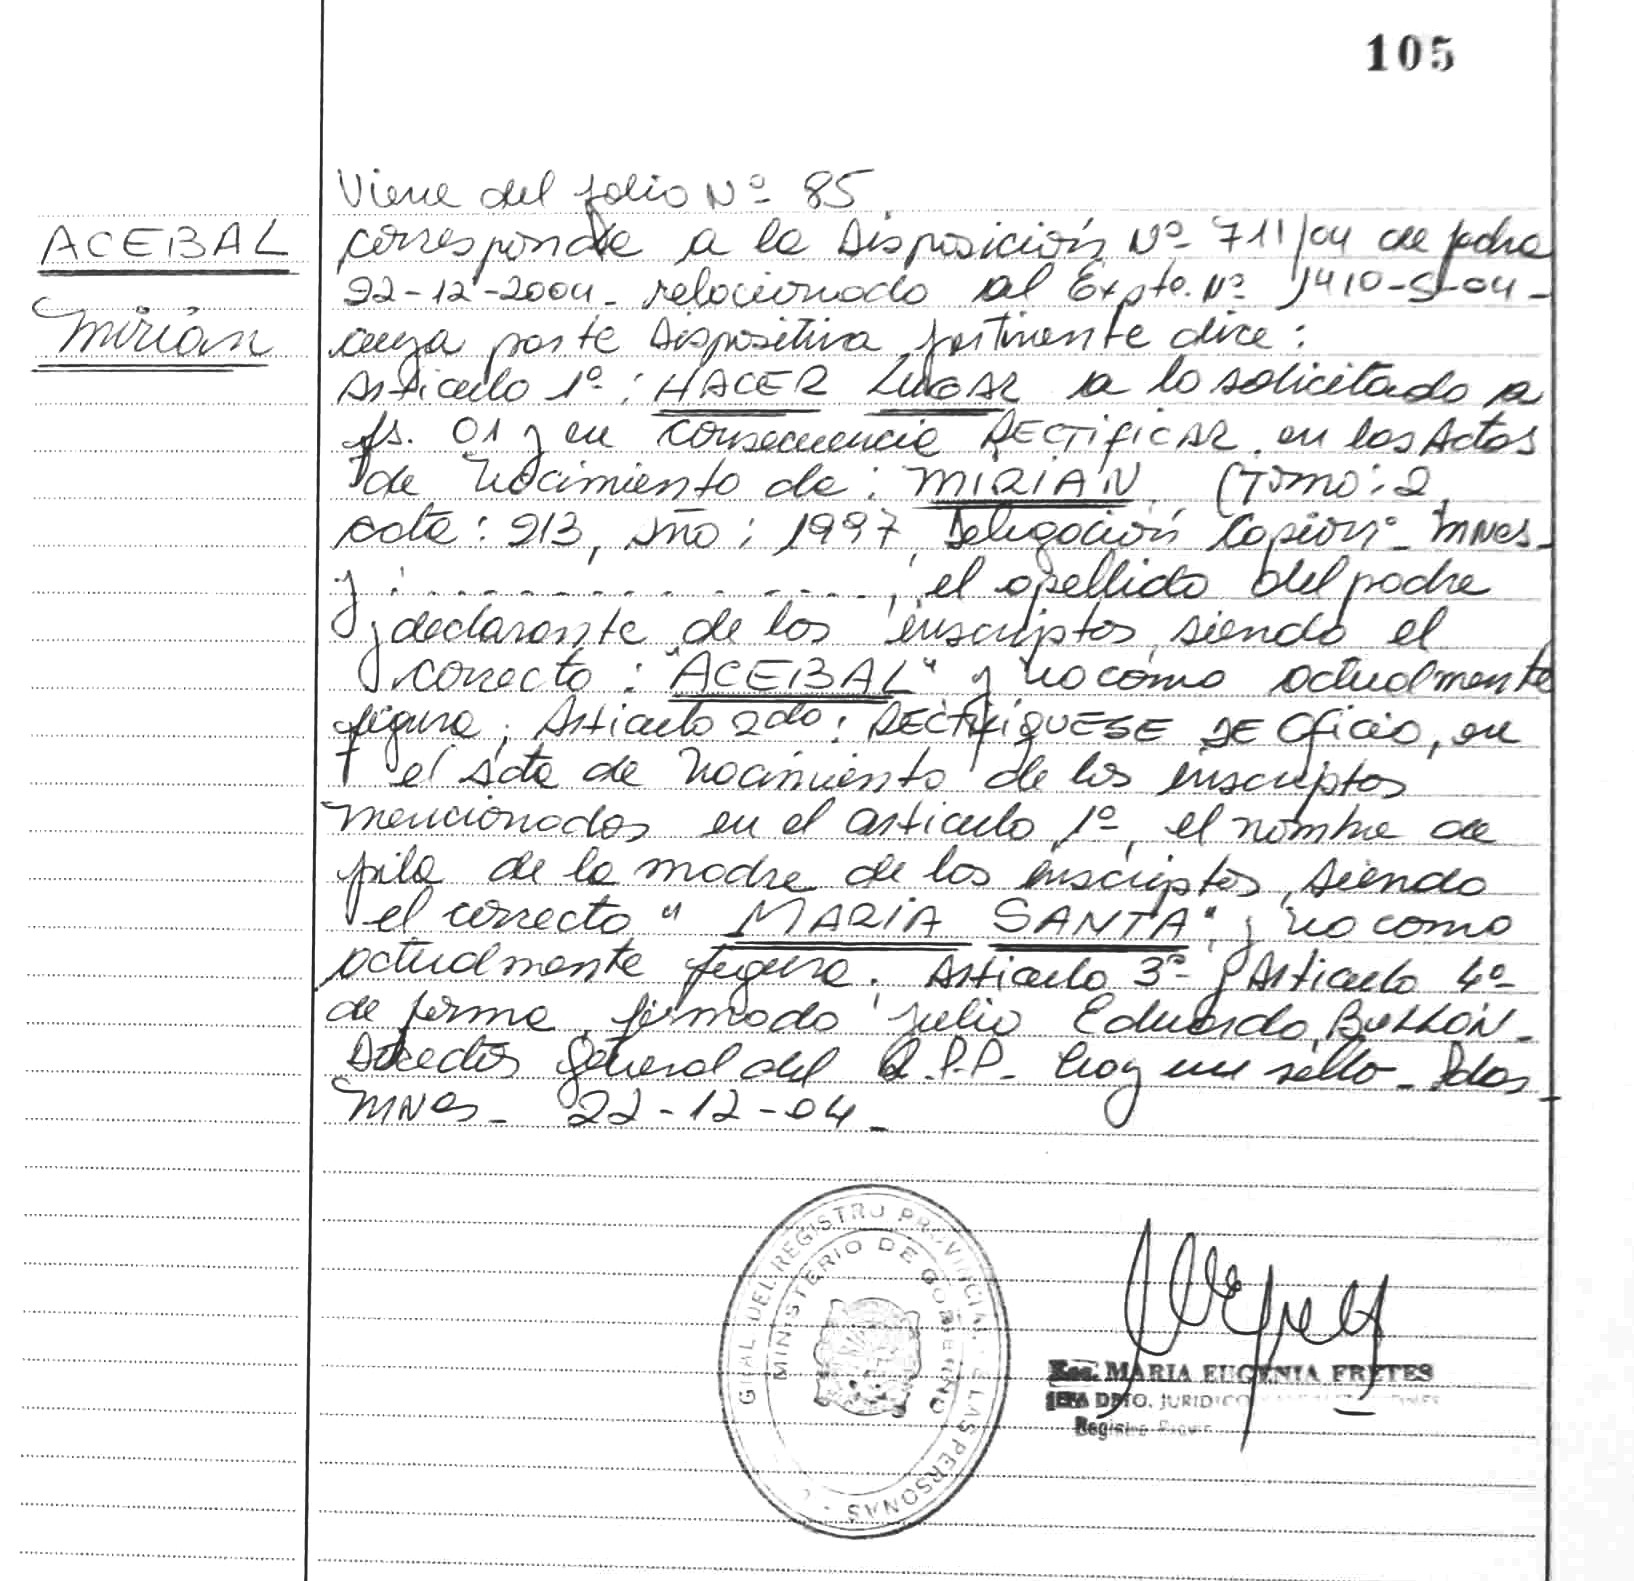 105
Viene del folio Nº 85
ACEBAL
Mirian
corresponde a la Disposición Nº 711/04 de fecha
22-12-2004 - relacionado al Expte. Nº 1410-S-04-
cuya parte Dispositiva pertinente dice:
Artículo 1º: HACER LUGAR a lo solicitado a
fs. 01 y en consecuencia RECTIFICAR en las Actas
de Nacimiento de: MIRIAN (Tomo: 2,
acta: 213, Año: 1997, Delegación Capioví - Mnes-
y : . . . . . . . . . . . . . . , el apellido del padre
y declarante de los inscriptos, siendo el
correcto: "ACEBAL" y no como actualmente
figura; Artículo 2do: RECTIFIQUESE DE Oficio, en
el Acta de Nacimiento de los inscriptos
mencionados en el artículo 1º, el nombre de
pila de la madre de los inscriptos, siendo
el correcto "MARIA SANTA", y no como
actualmente figura; Artículo 3º y Artículo 4º
de forma, firmado Julio Eduardo, BULLON-
Director General del R.P.P. hay un sello - Pdas
Mnes - 22-12-04 -
GRAL DEL REGISTRO PROVINCIAL DE LAS PERSONAS
MINISTERIO DE GOBIERNO
MARIA EUGENIA FRETES
DPTO. JURIDICO
Registro Provin